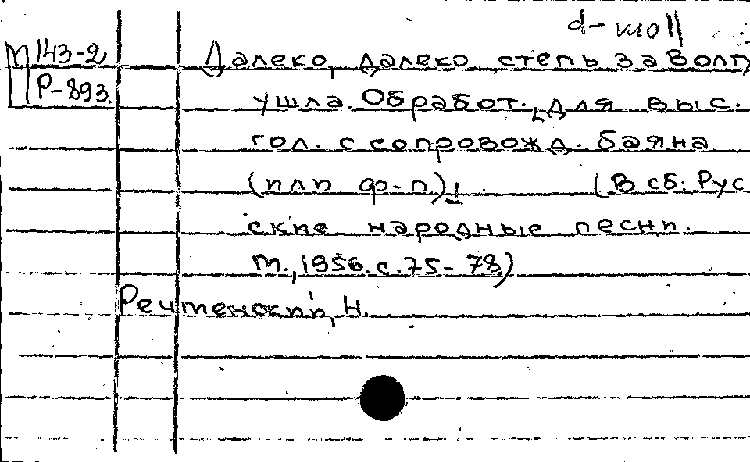 d-moll
М 143-2 Далеко, далеко степь за Волгу
Р-893. ушла. Обработ. [для выс.
гол. с сопровожд. баяна
(или ф-п.)] (В сб: Рус
ские народные песни.
М., 1956. с. 75-78)
Речменский, Н.